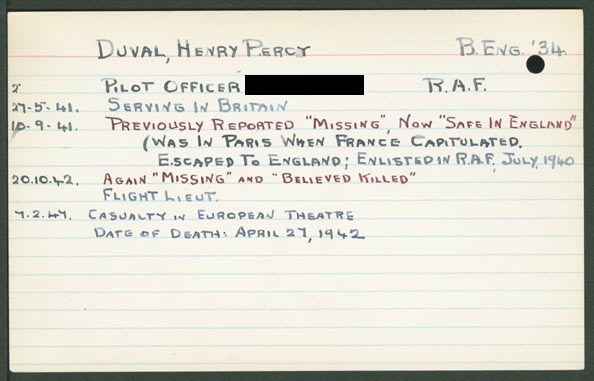 DUVAL, HENRY PERCY B. ENG. '34.
2 PILOT OFFICER R.A.F.
27-5-41. SERVING IN BRITAIN
10-9-41. PREVIOUSLY REPORTED "MISSING", NOW "SAFE IN ENGLAND"
(WAS IN PARIS WHEN FRANCE CAPITULATED.
ESCAPED TO ENGLAND; ENLISTED IN R.A.F., JULY, 1940
20.10.42. AGAIN "MISSING" AND "BELIEVED KILLED"
FLIGHT LIEUT.
7.2.47. CASUALTY IN EUROPEAN THEATRE
DATE OF DEATH: APRIL 27, 1942